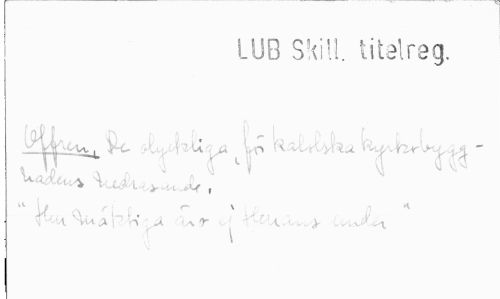 LUB Skill. titelreg.
Offren, De olyckliga, för katolska kyrkobygg-
nadens nedrasande.
"Hur mäktiga äro ej Herrans under"